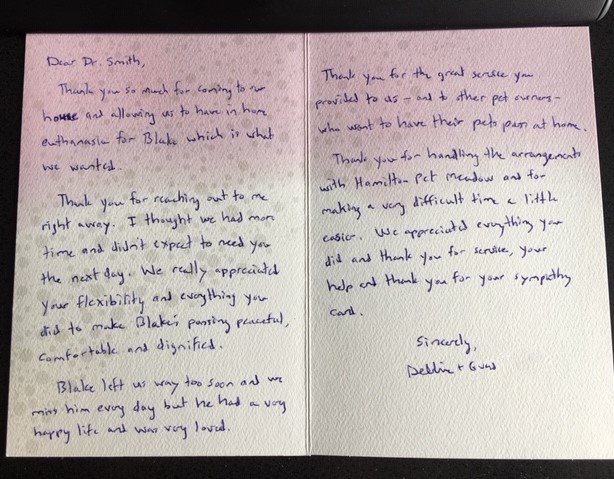 Dear Dr. Smith,
Thank you so much for coming to our
house and allowing us to have in home
euthanasia for Blake which is what
we wanted.
Thank you for reaching out to me
right away. I thought we had more
time and didn't expect to need you
the next day. We really appreciated
your flexibility and everything you
did to make Blake's passing peaceful,
comfortable and dignified.
Blake left us way too soon and we
miss him every day but he had a very
happy life and was very loved.
Thank you for the great service you
provided to us - and to other pet owners -
who want to have their pets pass at home.
Thank you for handling the arrangements
with Hamilton Pet Meadow and for
making a very difficult time a little
easier. We appreciated everything you
did and thank you for service, your
help and thank you for your sympathy
card.
Sincerely,
Debbie +